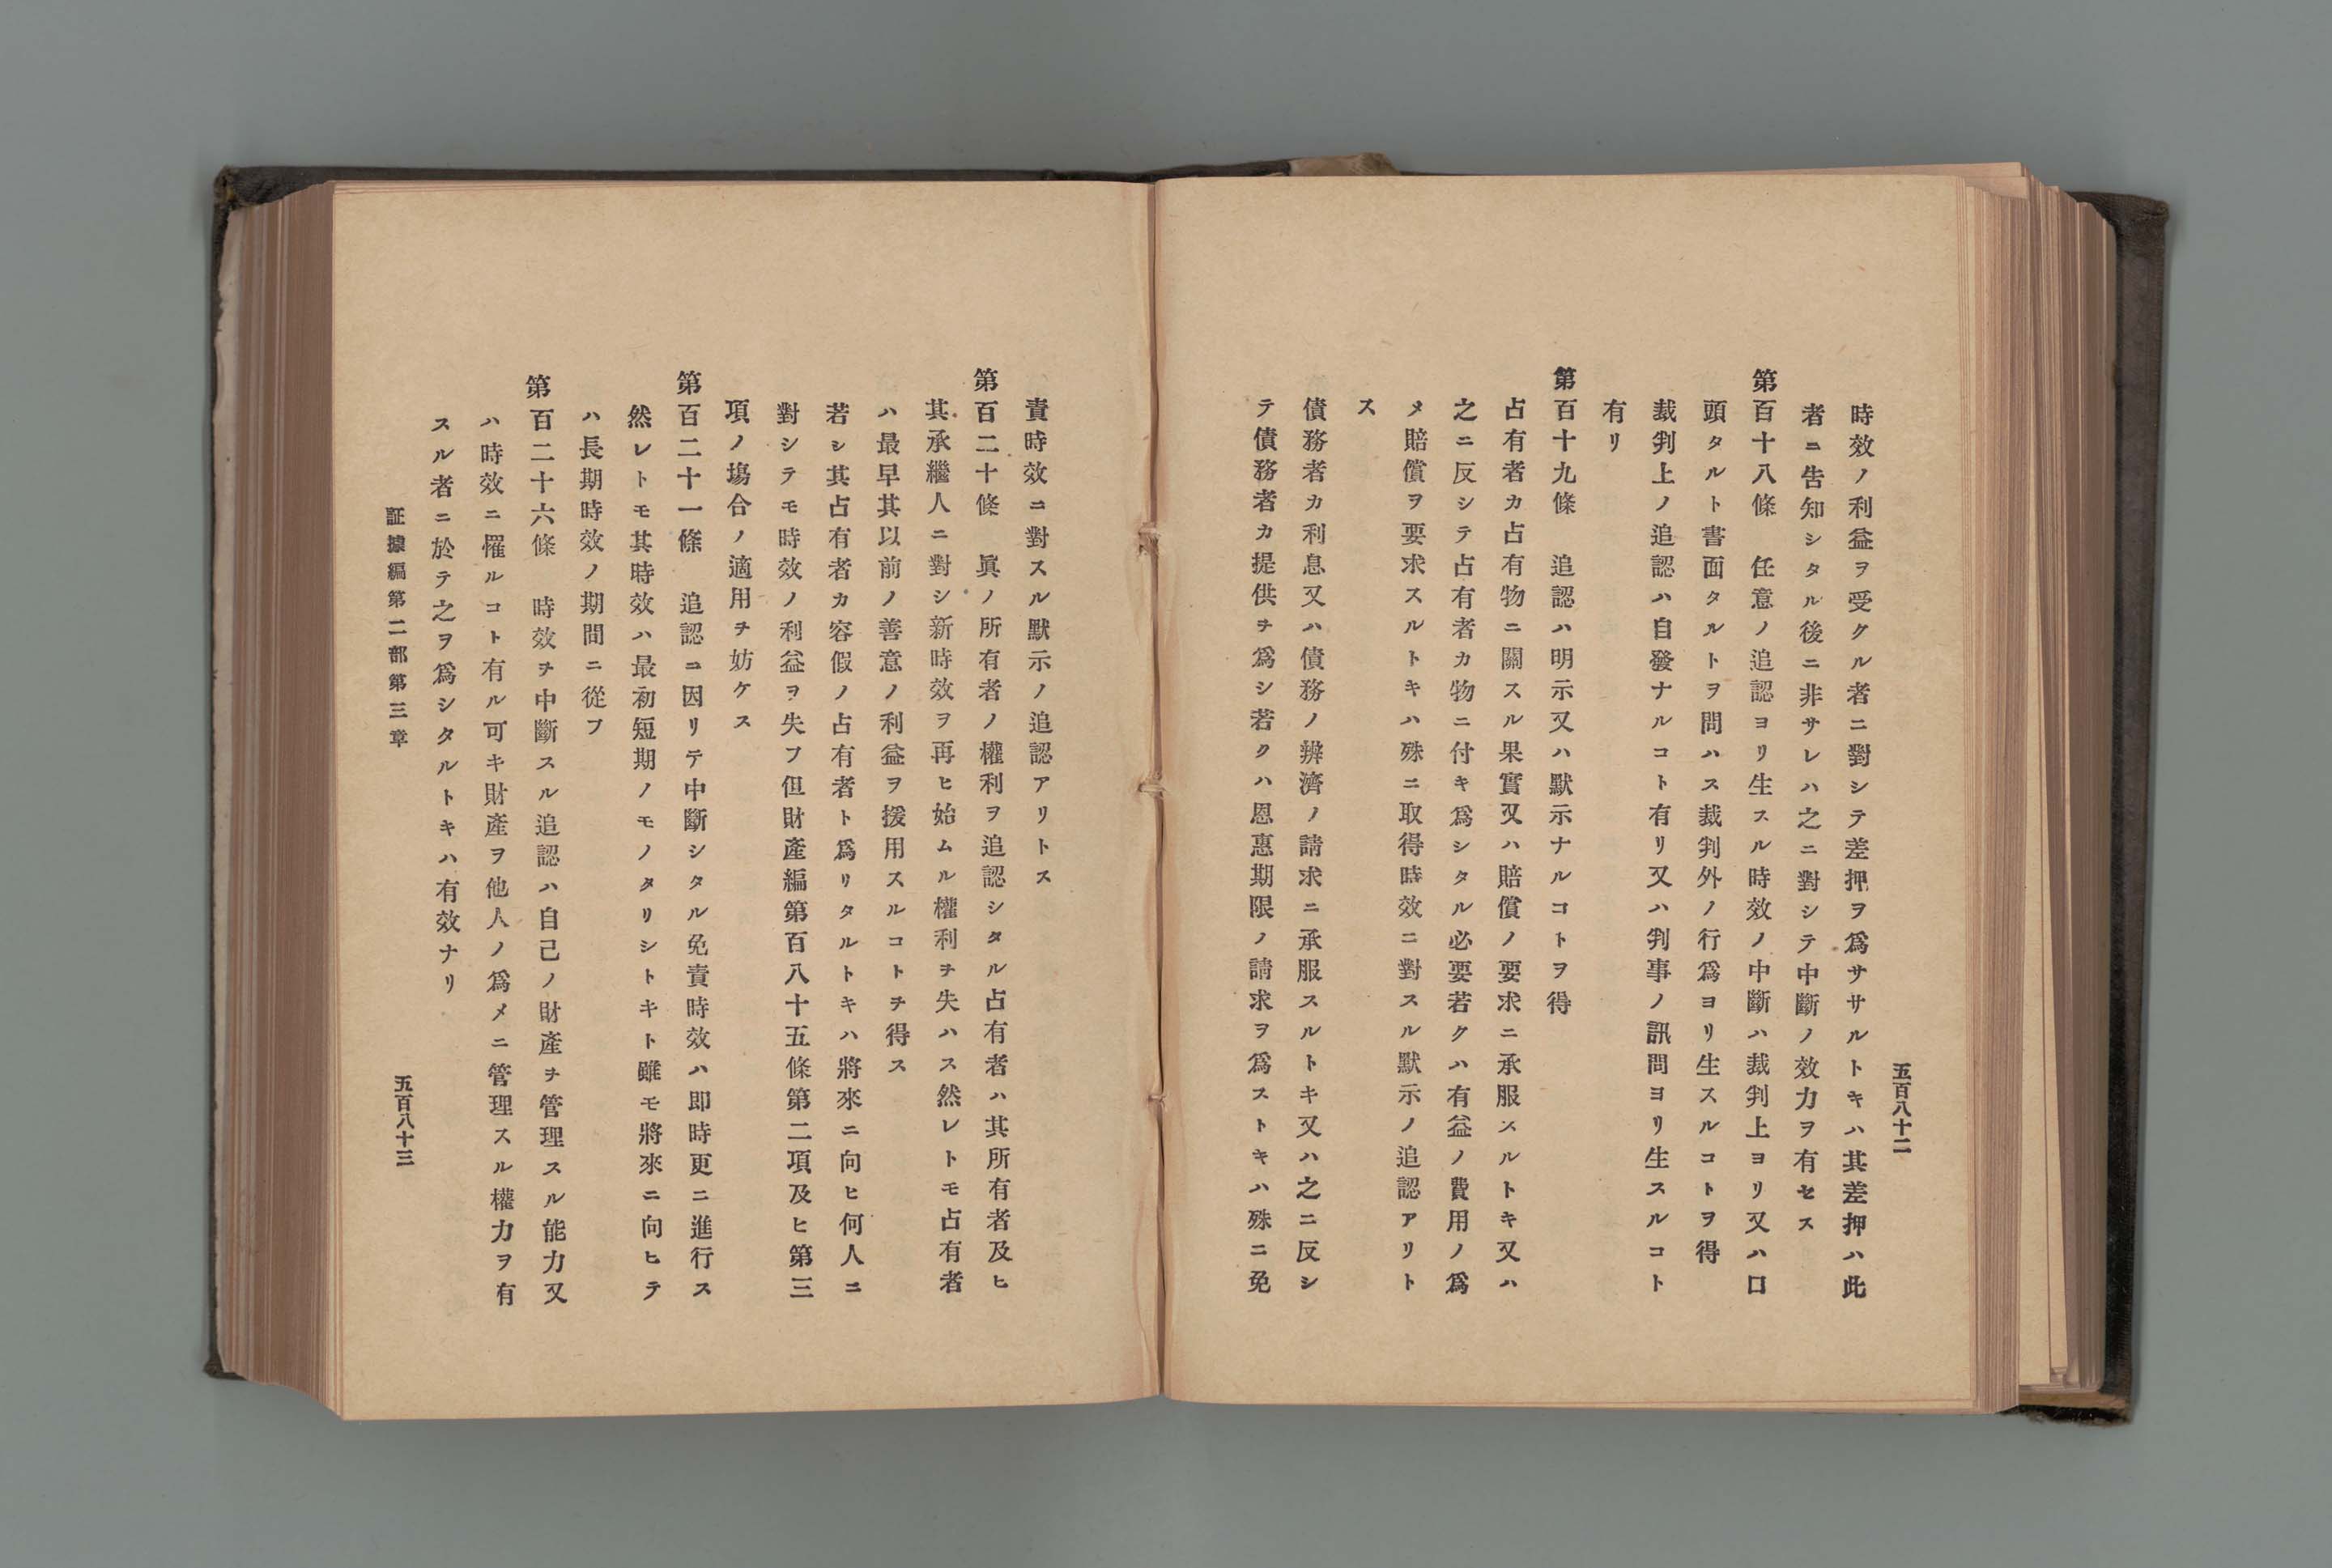 五百八十二
時效ノ利益ヲ受クル者ニ對シテ差押ヲ爲サヽルトキハ其差押ハ此
者ニ吿知シタル後ニ非サレハ之ニ對シテ中斷ノ效力ヲ有セス
第百十八條　任意ノ追認ヨリ生スル時效ノ中斷ハ裁判上ヨリ又ハ口
頭タルト書面タルトヲ問ハス裁判外ノ行爲ヨリ生スルコトヲ得
裁判上ノ追認ハ自發ナルコト有リ又ハ判事ノ訊問ヨリ生スルコト
有リ
第百十九條　追認ハ明示又ハ默示ナルコトヲ得
占有者カ占有物ニ關スル果實又ハ賠償ノ要求ニ承服スルトキ又ハ
之ニ反シテ占有者カ物ニ付キ爲シタル必要若クハ有益ノ費用ノ爲
メ賠償ヲ要求スルトキハ殊ニ取得時效ニ對スル默示ノ追認アリト
ス
債務者カ利息又ハ債務ノ辨濟ノ請求ニ承服スルトキ又ハ之ニ反シ
テ債務者カ提供ヲ爲シ若クハ恩惠期限ノ請求ヲ爲ストキハ殊ニ免
責時效ニ對スル默示ノ追認アリトス
第百二十條　眞ノ所有者ノ權利ヲ追認シタル占有者ハ其所有者及ヒ
其承繼人ニ對シ新時效ヲ再ヒ始ムル權利ヲ失ハス然レトモ占有者
ハ最早其以前ノ善意ノ利益ヲ援用スルコトヲ得ス
若シ其占有者カ容假ノ占有者ト爲リタルトキハ將來ニ向ヒ何人ニ
對シテモ時效ノ利益ヲ失フ但財產編第百八十五條第二項及ヒ第三
項ノ塲合ノ適用ヲ妨ケス
第百二十一條　追認ニ因リテ中斷シタル免責時效ハ即時更ニ進行ス
然レトモ其時效ハ最初短期ノモノタリシトキト雖モ將來ニ向ヒテ
ハ長期時效ノ期間ニ從フ
第百二十六條　時效ヲ中斷スル追認ハ自己ノ財產ヲ管理スル能力又
ハ時效ニ罹ルコト有ル可キ財產ヲ他人ノ爲メニ管理スル權力ヲ有
スル者ニ於テ之ヲ爲シタルトキハ有效ナリ
証據編第二部第三章
五百八十三